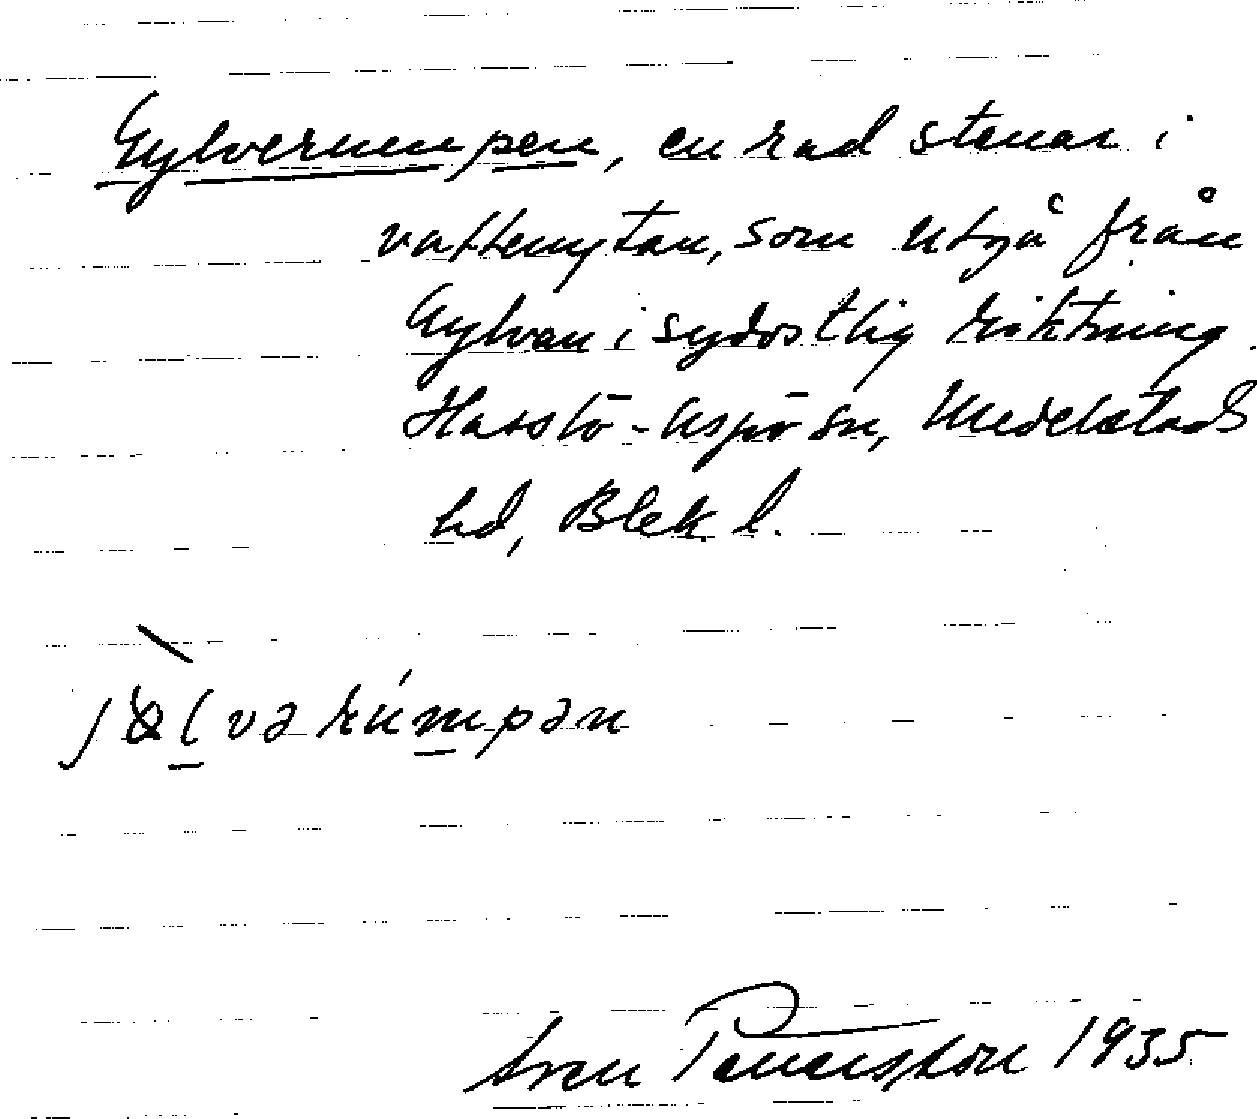 Gylverumpen, en rad stenar i
vattenytan, som utgå från
Gylvan i sydostlig riktning.
Hasslö-Aspö sn, Medelstads
hd, Blek. l.
Sven Benson 1935